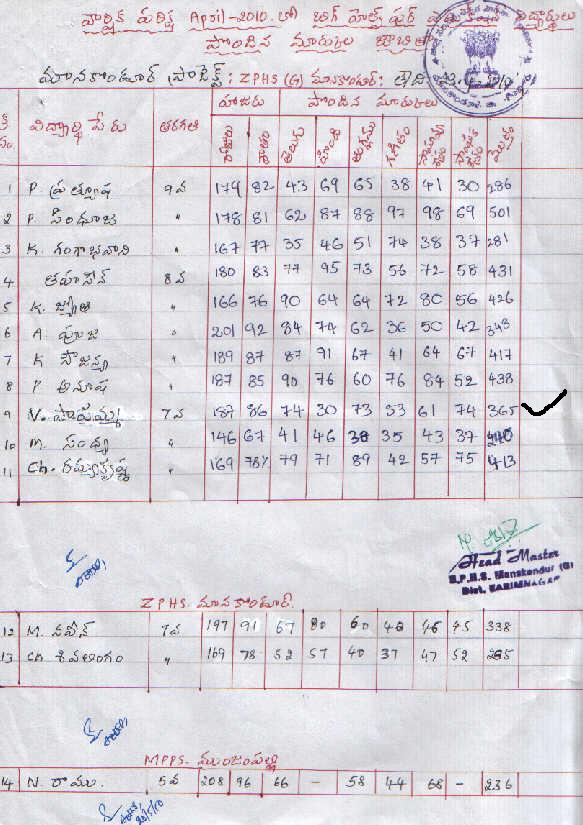 వార్షిక పరీక్ష April-2010.లో బిగ్ హెల్ప్ ఫర్ విద్యార్థులు
పొందిన మార్కుల జాబితా
మానకొండూర్ ప్రాజెక్ట్: ZPHS (G) మానకొండూర్:
హాజరు పొందిన మార్కులు
విద్యార్థి పేరు తరగతి హాజరు శాతం తెలుగు హిందీ ఇంగ్లీషు గణితం మొత్తం
1 P. ప్రత్యూష 9వ 179 82 43 69 65 38 41 30 286
2 P. సింధూజ " 178 81 62 87 88 97 98 69 501
3 K. గంగాభవాని " 167 77 35 46 51 74 38 37 281
4 తహసీన్ 8వ 180 83 77 95 73 56 72 58 431
5 K. జ్యోతి " 166 76 90 64 64 72 80 56 426
6 A. పూజ " 201 92 84 74 62 36 50 42 348
7 K సౌజన్య " 189 87 87 91 67 41 64 67 417
8 P అనూష " 187 85 90 76 60 76 84 52 438
9 N. 7వ 187 86 74 30 73 53 61 74 365
10 M. సంధ్య " 146 67 41 46 38 35 43 37 240
11 Ch. రమ్యకృష్ణ " 169 78% 79 71 89 42 57 75 413
Head Master
Z.P.H.S. Manakondur (G)
Dist. KARIMNAGAR
ZPHS. మానకొండూర్.
12 M. నవీన్ 7వ 197 91 67 80 60 46 46 45 338
13 Ch. శివలింగం " 169 78 52 57 40 37 47 52 285
MPPS. ముంజంపల్లి
14 N. రాము. 5వ 208 96 66 - 58 44 68 - 236